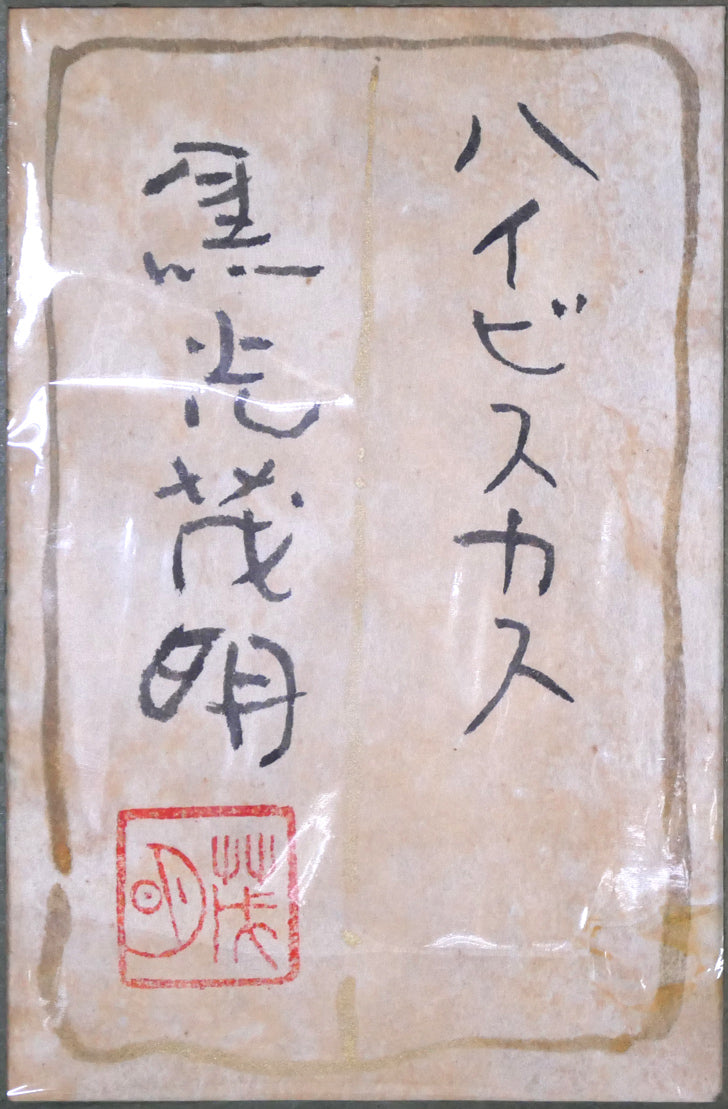 ハイビスカス
黒光茂明
茂明